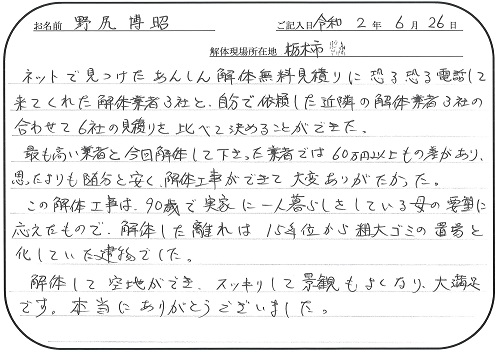 お名前 野尻 博昭 ご記入日 令和 2 年 6 月 26 日
解体現場所在地 栃木市
ネットで見つけた あんしん解体無料見積りに 恐る恐る電話して
来てくれた解体業者3社と、自分で依頼した近隣の解体業者3社の
合わせて6社の見積りを比べて決めることができた。
最も高い業者と今回解体して下さった業者では60万円以上もの差があり、
思ったよりも随分と安く、解体工事ができて大変ありがたかった。
この解体工事は、90歳で実家に一人暮らしをしている母の要望に
応えたもので、解体した離れは15年位から粗大ゴミの置場と
化していた建物でした。
解体して空地ができ、スッキリして景観もよくなり、大満足
です。本当にありがとうございました。